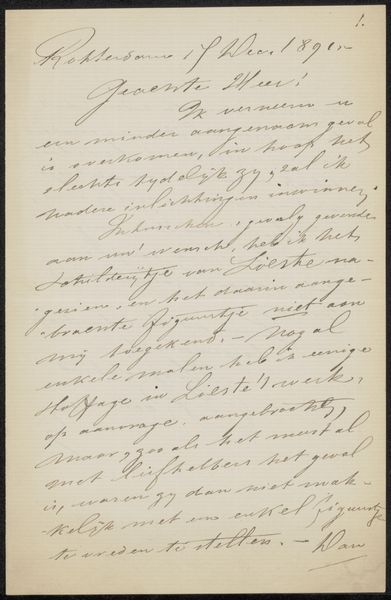 1.
Rotterdam 17 Dec. 189
Geachte Heer!
Ik verneem u
een minder aangenaam geval
is overkomen, in hoop het
slechts tydelijk zy, zal ik
nadere inlichtingen inwinnen.
Inhusschen, gevolg gevende
aan uw' wensch, heb ik het
schilderijtje van Lieste na-
gezien, en het daarin aange-
braente figuurtje niet aan
my toegekend. — Nogal
enkele malen heb ik eenige
stoffage in Lieste's werk,
op aanvrage, aangebracht,
maar, zoo als het meestal
met liefhebbers het geval
is, waren zy dan niet mak-
kelijk met een enkel figuurtje
te vreden te stellen. — Dan